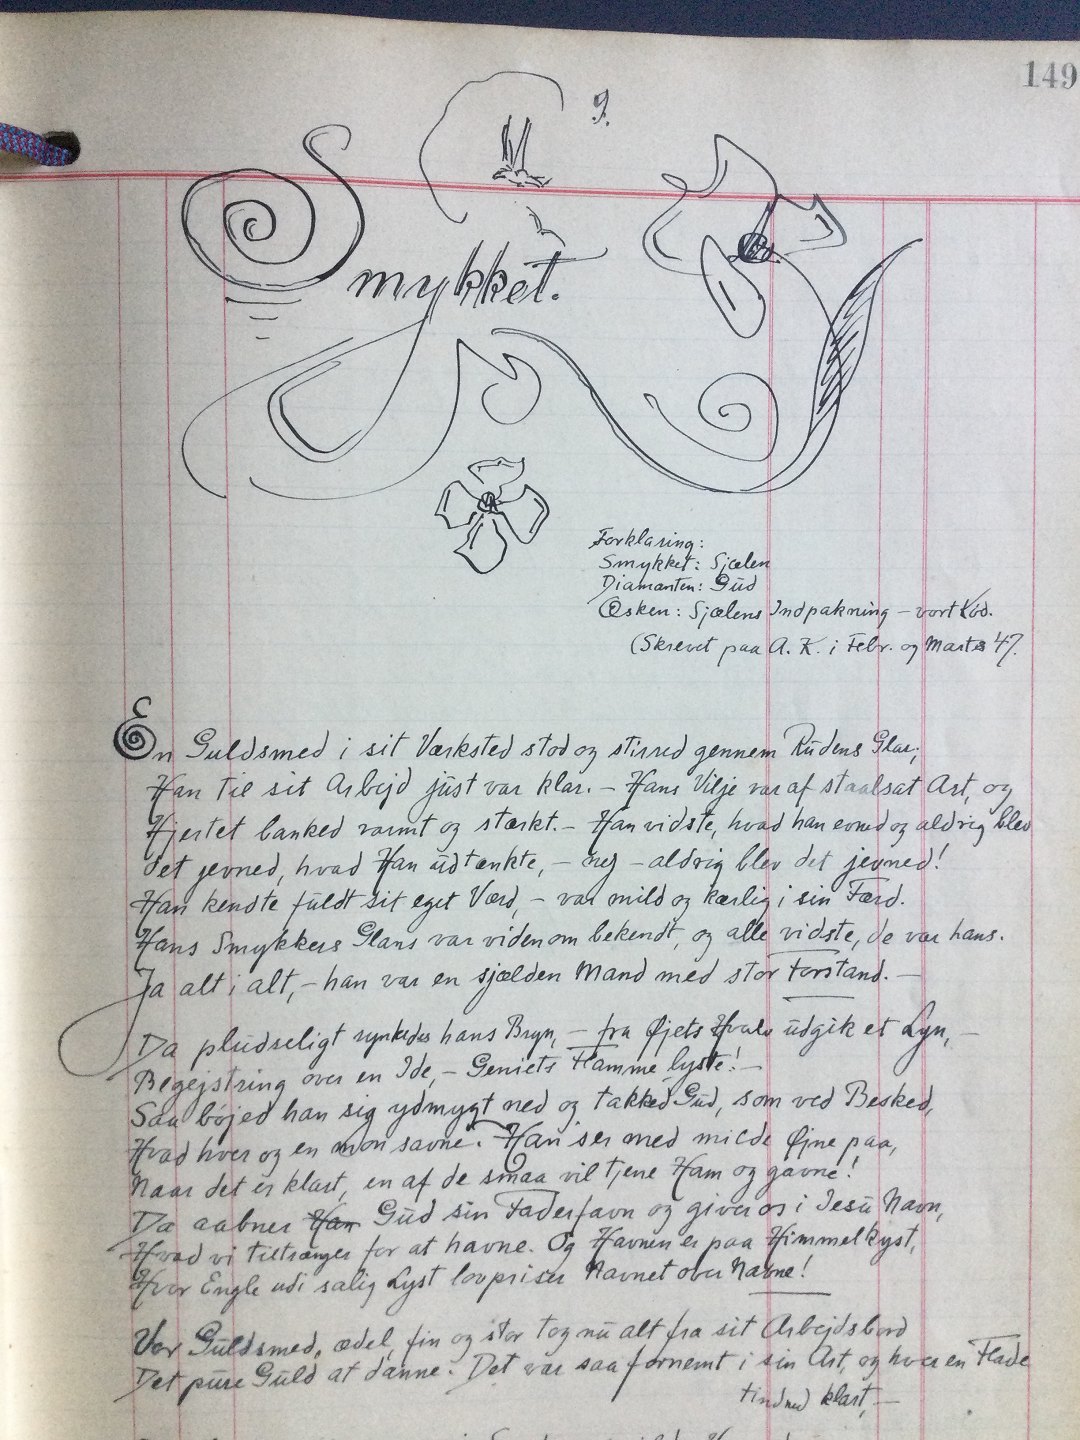 149
9.
Smykket.
Forklaring:
Smykket: Sjælen
Diamanten: Gud
Æsken: Sjælens Indpakning – vort Kød.
(Skrevet paa A. K. i Febr. og Marts 47.
En Guldsmed i sit Værksted stod og stirred gennem Rudens Glas,
Han til sit Arbejd just var klar. – Hans Vilje var af staalsat Art, og
Hjertet banked varmt og stærkt. – Han vidste, hvad han evned og aldrig blev
det jevned, hvad Han udtænkte, – nej – aldrig blev det jevned!
Han kendte fuldt sit eget Værd, – var mild og kærlig i sin Færd.
Hans Smykkers Glans var viden om bekendt, og alle vidste, de var hans.
Ja alt i alt, – han var en sjælden Mand med stor Forstand. –
Da pludseligt rynkedes hans Bryn, – fra Øjets Hvalv udgik et Lyn, –
Begejstring over en Ide, – Geniets Flamme lyste! –
Saa bøjed han sig ydmygt ned og takked Gud, som ved Besked,
Hvad hver og en mon savne. Han ser med milde Øjne paa,
Naar det er klart, en af de smaa vil tjene Ham og gavne!
Da aabner Han Gud sin Faderfavn og giver os i Jesu Navn,
Hvad vi tiltrænger for at havne. Og Havnen er paa Himmelkyst,
Hvor Engle udi salig Lyst lovpriser Navnet over Navne!
Vor Guldsmed, ædel, fin og stor tog nu alt fra sit Arbejdsbord
Det pure Guld at danne. Det var saa fornemt i sin Art, og hver en Flade
klart, –